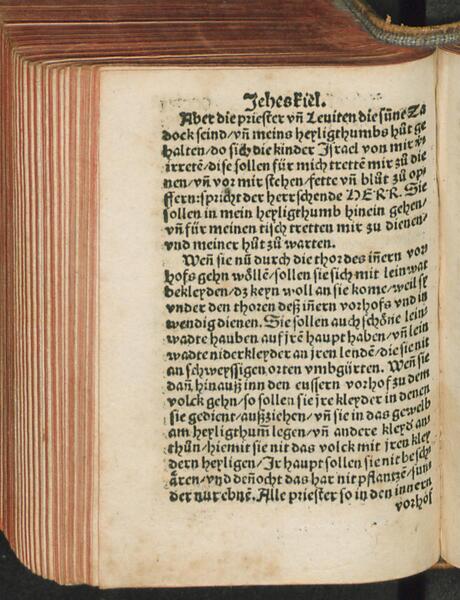 Jeheskiel.
Aber die priester vn̄ Leuiten die sün̄e Za
dock seind/vn̄ meins heyligthumbs hůt ge
halten/do sich die kinder Jsrael von mir v̈
irretē/dise sollen für mich trettē mir zů die
nen/vn̄ vor mir stehen/fette vn̄ blůt zů op⸗
ffern:spricht der herrschende HERR. Sie
sollen in mein heyligthumb hinein gehen/
vn̄ für meinen tisch tretten mir zů dienen/
vnd meiner hůt zů warten.
Weñ sie nū durch die thor des iñern vor
hofs gehn wöllē/sollen sie sich mit leinwat
bekleyden/dz keyn woll an sie kome/weil sie
vnder den thoren deß iñern vorhofs vnd in
wendig dienen. Sie sollen auch schöne lein⸗
wadte hauben auf jrē haupt haben/vn̄ lein
wadte niderkleyder an jren lendē/die sie nit
an schweyssigen orten vmbgürten. Weñ sie
dañ hinauß inn den eussern vorhof zu dem
volck gehn/so sollen sie jre kleyder in denen
sie gedient/außziehen/vn̄ sie in das gewelb
am heyligthum̄ legen/vn̄ andere kleyd an⸗
thůn/hiemit sie nit das volck mit jren kley
dern heyligen/Jr haupt sollen sie nit besch
ären/vnd deñocht das har nit pflantzē/sun
der nur ebnē. Alle priester so in den innern
vorhof